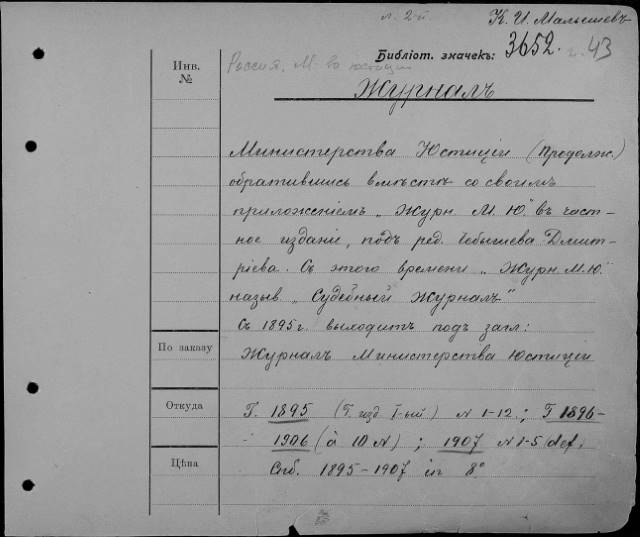 л. 2-й.
К. И. Малышевъ
Инв.
№
Россия. М-во юстиции
Библіот. значекъ: 3652 г. 43
Журналъ
Министерства Юстиціи (Продолж.)
обратившись вмѣстѣ со своимъ
приложеніемъ „Журн. М. Ю." въ част-
ное изданіе, подъ ред. Чебышева-Дмит-
ріева. Съ этого времени „Журн. М. Ю."
назыв. „Судебный Журналъ"
Съ 1895 г. выходитъ подъ загл:
По заказу
Журналъ Министерства Юстиціи
Откуда
Г. 1895 (Г. изд I-ый) N 1-12.; Г 1896-
1906 (à 10 N) ; 1907 N 1-5 (def.
Цѣна
Спб. 1895-1907 in 8°.